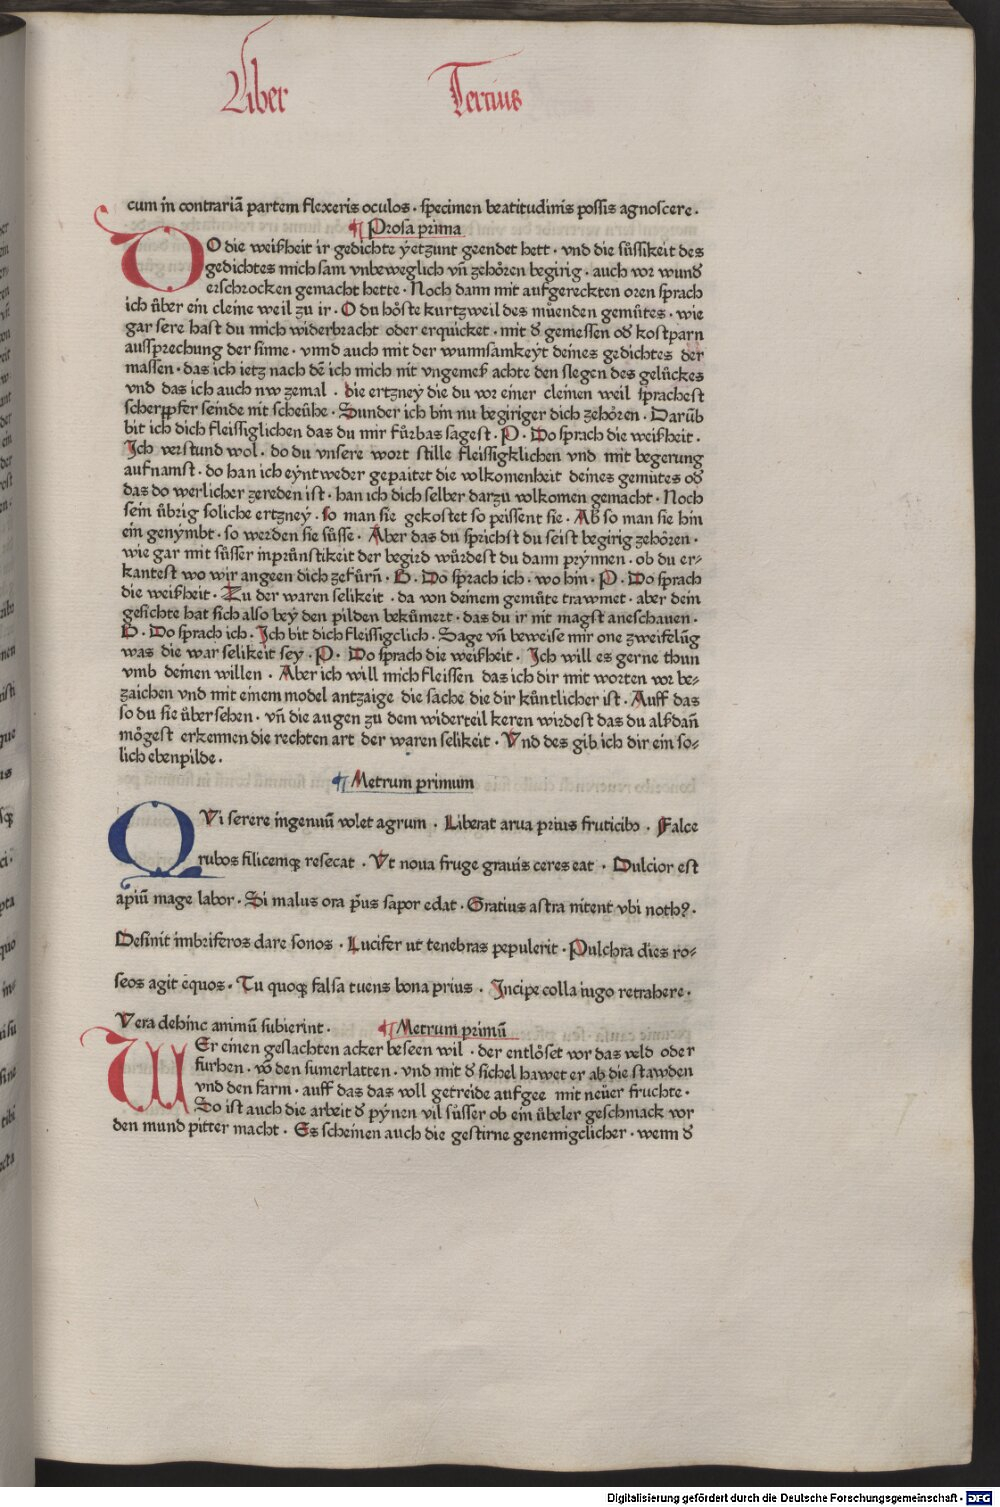 Liber Tercius
cum in contrariā partem flexeris oculos · specimen beatitudinis possis agnoscere ·
¶ Prosa prima
DO die weißheit ir gedichte yetzunt geendet hett · vnd die süssikeit des
gedichtes mich sam vnbeweglich vñ zehören begirig · auch vor wund̛
erschrocken gemacht hette · Noch dann mit aufgereckten oren sprach
ich über ein cleine weil zu ir · O du höste kurtzweil des müenden gemütes · wie
gar sere hast du mich widerbracht oder erquicket · mit d̛ gemessen od̛ kostparn
aussprechung der sinne · vnnd auch mit der wunnsamkeyt deines gedichtes der
massen · das ich ietz nach dē ich mich nit vngemeß achte den slegen des gelückes
vnd das ich auch nw zemal · die ertzney die du vor einer cleinen weil sprachest
scherpfer seinde nit scheühe · Sunder ich bin nu begiriger dich zehören · Darüb
bit ich dich fleissiglichen das du mir fürbas sagest · P · Do sprach die weißheit ·
Ich verstund wol · do du vnsere wort stille fleissigklichen vnd mit begerung
aufnamst · do han ich eyntweder gepaitet die volkomenheit deines gemütes od̛
das do werlicher zereden ist · han ich dich selber darzu volkomen gemacht · Noch
sein übrig soliche ertzney · so man sie gekostet so peissent sie · Ab so man sie hin
ein genymbt · so werden sie süsse · Aber das du sprichst du seist begirig zehören ·
wie gar mit süsser inprünstikeit der begird würdest du dann prynnen · ob du er⸗
kantest wo wir angeen dich zefürñ · B · Do sprach ich · wo hin · P · Do sprach
die weißheit · Zu der waren selikeit · da von deinem gemüte trawmet · aber dein
gesichte hat sich also bey den pilden bekümert · das du ir nit magst aneschauen ·
B · Do sprach ich · Ich bit dich fleissigclich · Sage vñ beweise mir one zweifelūg
was die war selikeit sey · P · Do sprach die weißheit · Ich will es gerne thun
vmb deinen willen · Aber ich will mich fleissen das ich dir mit worten vor be⸗
zaichen vnd mit einem model antzaige die sache die dir küntlicher ist · Auff das
so du sie übersehen · vñ die augen zu dem widerteil keren wirdest das du alßdañ
mögest erkennen die rechten art der waren selikeit · Vnd des gib ich dir ein so⸗
lich ebenpilde ·
¶ Metrum primum
QVi serere ingenuū volet agrum · Liberat arua prius fruticibꝫ · Falce
rubos filicemqꝫ resecat · Vt noua fruge grauis ceres eat · Dulcior est
apiū mage labor · Si malus ora p̄us sapor edat · Gratius astra nitent vbi nothꝰ ·
Desinit imbriferos dare sonos · Lucifer ut tenebras pepulerit · Pulchra dies ro⸗
seos agit equos · Tu quoqꝫ falsa tuens bona prius · Incipe colla iugo retrahere ·
Vera dehinc animū subierint · ¶ Metrum primū
WEr einen geslachten acker beseen wil · der entlöset vor das veld oder
furhen · vō den sumerlatten · vnd mit d̛ sichel hawet er ab die stawden
vnd den farm · auff das das voll getreide aufgee mit neüer fruchte ·
So ist auch die arbeit d̛ pynen vil süsser ob ein übeler geschmack vor
den mund pitter macht · Es scheinen auch die gestirne genemigclicher · wenn d̛
Digitalisierung gefördert durch die Deutsche Forschungsgemeinschaft - DFG